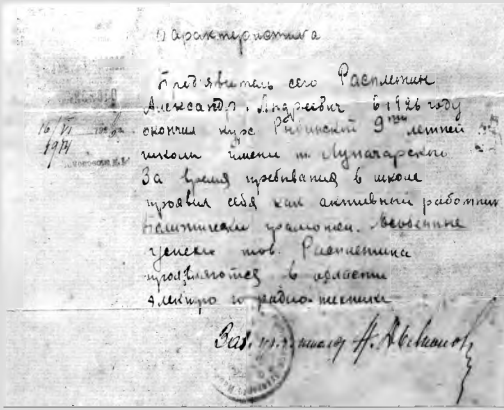 Характеристика
Предъявитель сего Расплетин
Александр Андреевич в 1926 году
окончил курс Рыбинской 9ти летней
школы имени т. Луначарского
За время пребывания в школе
проявил себя как активный работник
политически грамотен. Особенные
успехи тов. Расплетина
проявляются в области
электро и радио-техники
Зав.
16/VI